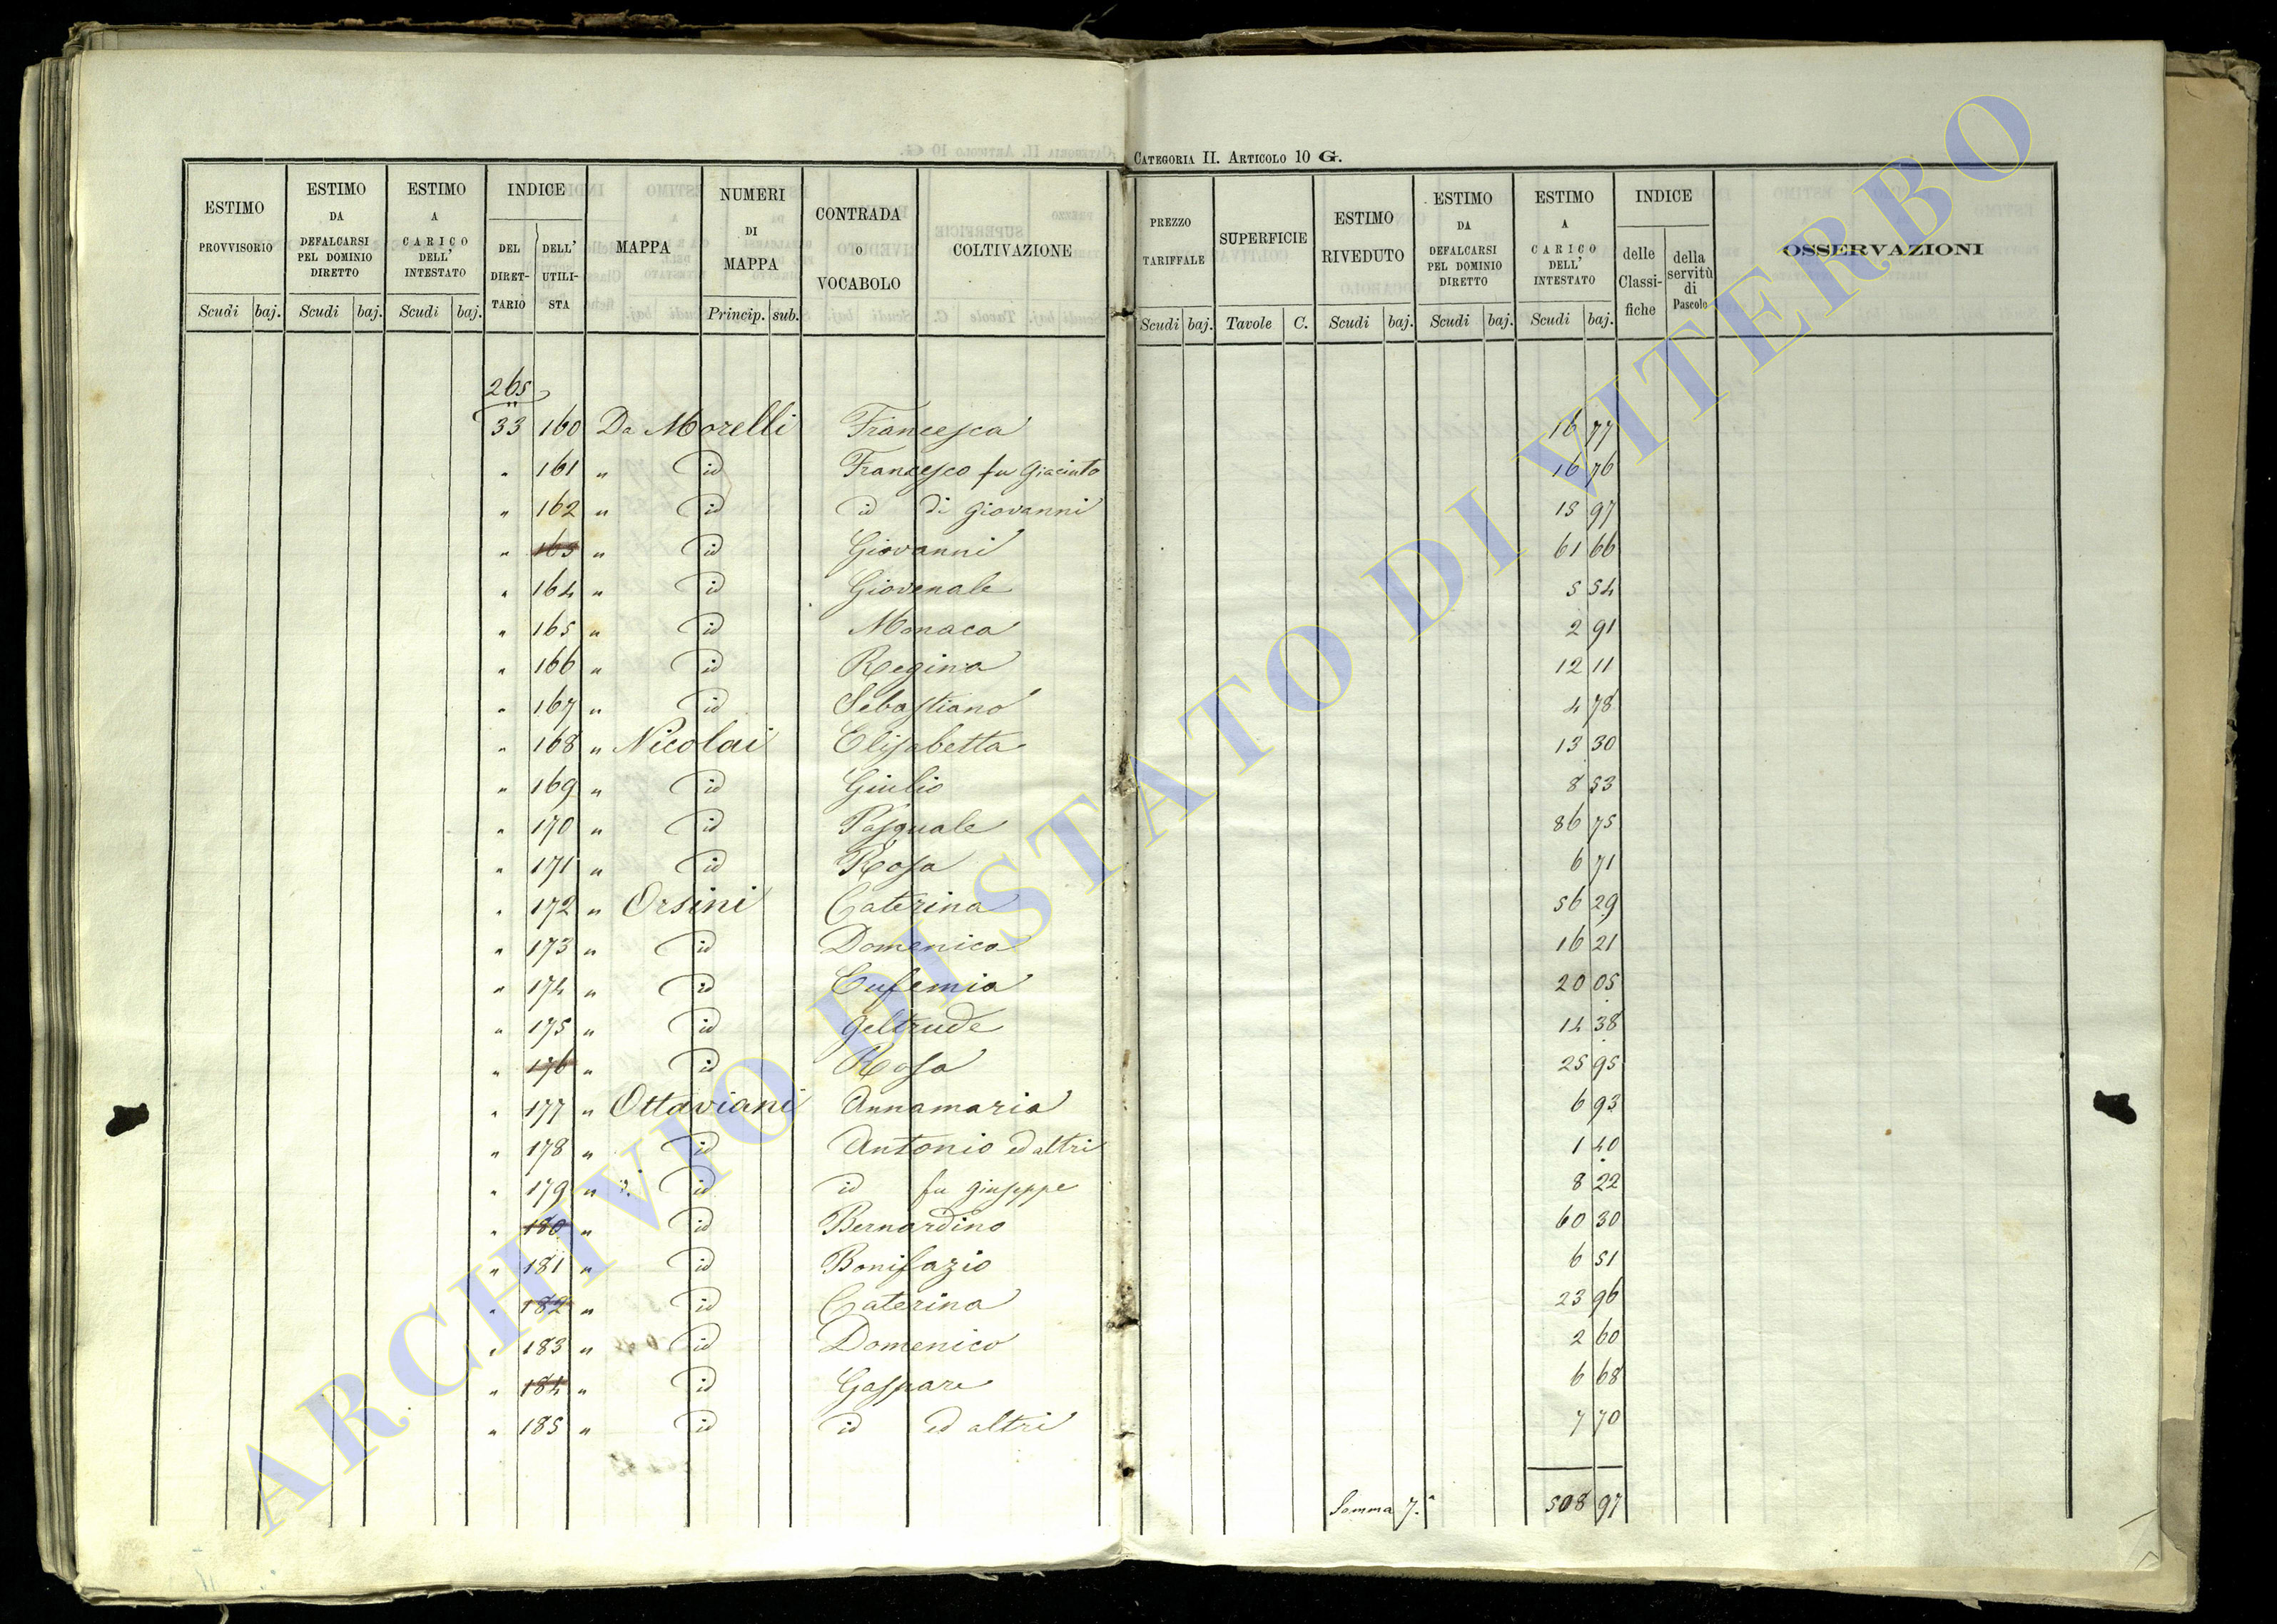 CATEGORIA II. ARTICOLO 10 G.
ESTIMO PROVVISORIO Scudi baj.
ESTIMO DA DEFALCARSI PEL DOMINIO DIRETTO Scudi baj.
ESTIMO A CARICO DELL' INTESTATO Scudi baj.
INDICE DEL DIRETTARIO DELL' UTILISTA
MAPPA
NUMERI DI MAPPA Princip. sub.
CONTRADA O VOCABOLO
COLTIVAZIONE
PREZZO TARIFFALE Scudi baj.
SUPERFICIE Tavole C.
ESTIMO RIVEDUTO Scudi baj.
ESTIMO DA DEFALCARSI PEL DOMINIO DIRETTO Scudi baj.
ESTIMO A CARICO DELL' INTESTATO Scudi baj.
INDICE delle Classifiche della servitù di Pascolo
OSSERVAZIONI
265
33 160 Da Morelli Francesca 16 77
" 161 " id Francesco fu Giacinto 16 76
" 162 " id id di Giovanni 15 97
" 163 " id Giovanni 61 66
" 164 " id Giovenale 5 54
" 165 " id Monaca 2 91
" 166 " id Regina 12 11
" 167 " id Sebastiano 4 78
" 168 " Nicolai Elisabetta 13 30
" 169 " id Giulio 8 53
" 170 " id Pasquale 86 75
" 171 " id Rosa 6 71
" 172 " Orsini Caterina 56 29
" 173 " id Domenica 16 21
" 174 " id Eufemia 20 05
" 175 " id Geltrude 14 38
" 176 " id Rosa 25 95
" 177 " Ottaviani Annamaria 6 93
" 178 " id Antonio ed altri 1 40
" 179 " id id fu Giuseppe 8 22
" 180 " id Bernardino 60 30
" 181 " id Bonifazio 6 51
" 182 " id Caterina 23 96
" 183 " id Domenico 2 60
" 184 " id Gaspare 6 68
" 185 " id id ed altri 7 70
Somma 7.ª 508 97
ARCHIVIO DI STATO DI VITERBO